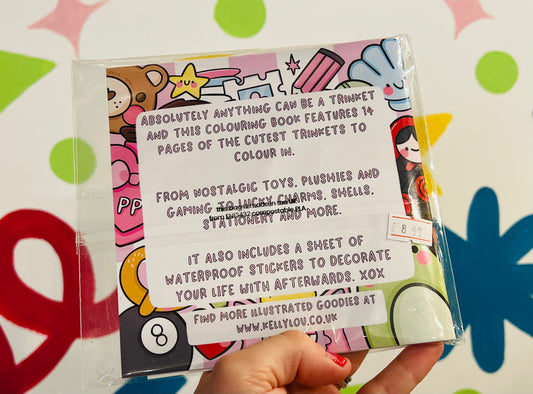 ABSOLUTELY ANYTHING CAN BE A TRINKET
AND THIS COLOURING BOOK FEATURES 14
PAGES OF THE CUTEST TRINKETS TO
COLOUR IN.
FROM NOSTALGIC TOYS, PLUSHIES AND
GAMING TO LUCKY CHARMS, SHELLS,
STATIONERY AND MORE.
this bag is made in the UK
from EN13432 compostable PLA
IT ALSO INCLUDES A SHEET OF
WATERPROOF STICKERS TO DECORATE
YOUR LIFE WITH AFTERWARDS. XOX
FIND MORE ILLUSTRATED GOODIES AT
WWW.KELLYLOU.CO.UK
£8.99
PP
8